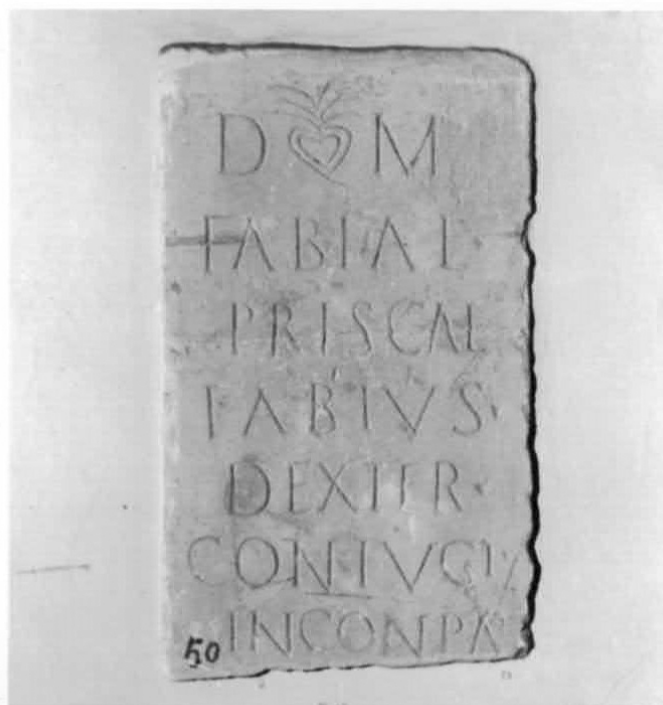 D M
FABIAE·
PRISCAE
FABIVS·
DEXTER·
CONIVGI
50 INCONPA